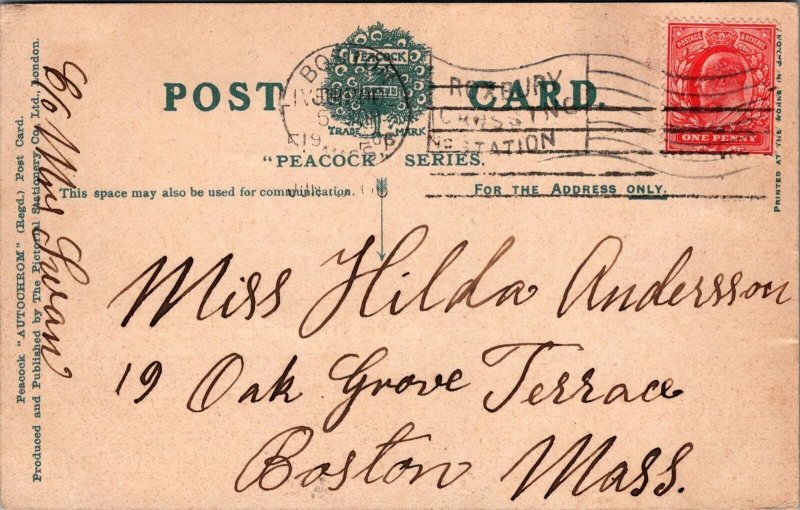 POST CARD.
PEACOCK
TRADE MARK
"PEACOCK" SERIES.
This space may also be used for communication.
FOR THE ADDRESS ONLY.
ROXBURY
CROSSING
STATION
ONE PENNY
Miss Hilda Anderssson
19 Oak Grove Terrace
Boston Mass.
C/o Mrs Swan
Peacock "AUTOCHROM" (Regd.) Post Card.
Produced and Published by The Pictorial Stationery Co., Ltd., London.
PRINTED AT THE WORKS IN SAXONY